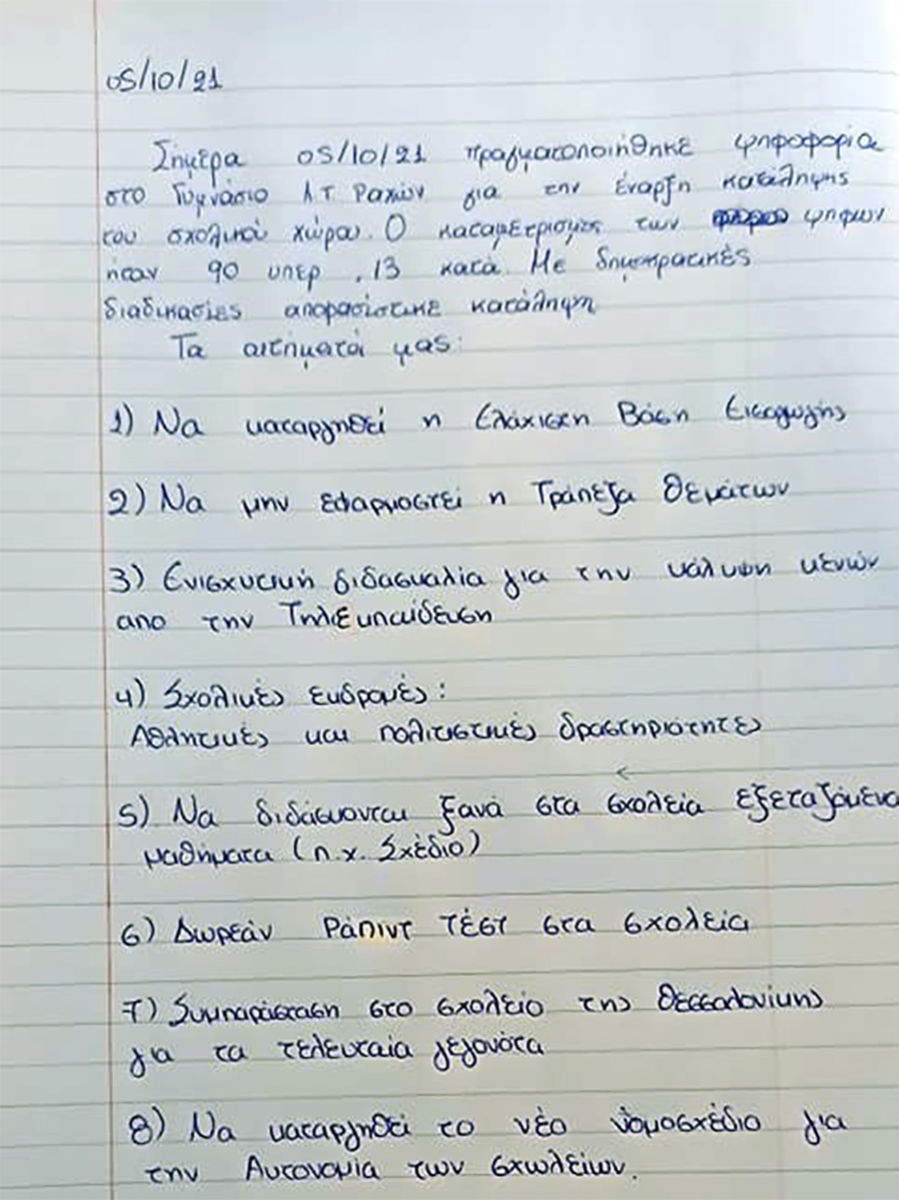 05/10/21
Σήμερα 05/10/21 πραγματοποιήθηκε ψηφοφορία
στο Γυμνάσιο Λ.Τ. Ραχών για την έναρξη κατάληψης
του σχολικού χώρου. Ο καταμετρισμός των ψήφων
ήταν 90 υπερ , 13 κατά. Με δημοκρατικές
διαδικασίες αποφασίστικε κατάληψη
Τα αιτήματά μας:
1) Να καταργηθεί η Ελάχιστη Βάση Εισαγωγής
2) Να μην εφαρμοστεί η Τράπεζα Θεμάτων
3) Ενισχυτική διδασκαλία για την κάλυψη κενών
απο την Τηλεκπαίδευση
4) Σχολικές εκδρομές:
Αθλητικές και πολιτιστικές δραστηριότητες
5) Να διδάσκονται ξανά στα σχολεία εξεταζόμενα
μαθήματα (π.χ. Σχέδιο)
6) Δωρεάν Ράπιντ τέστ στα σχολεία
7) Συμπαράσταση στο σχολείο της Θεσσαλονίκης
για τα τελευταία γεγονότα
8) Να καταργηθεί το νέο νομοσχέδιο για
την Αυτονομία των σχωλείων.